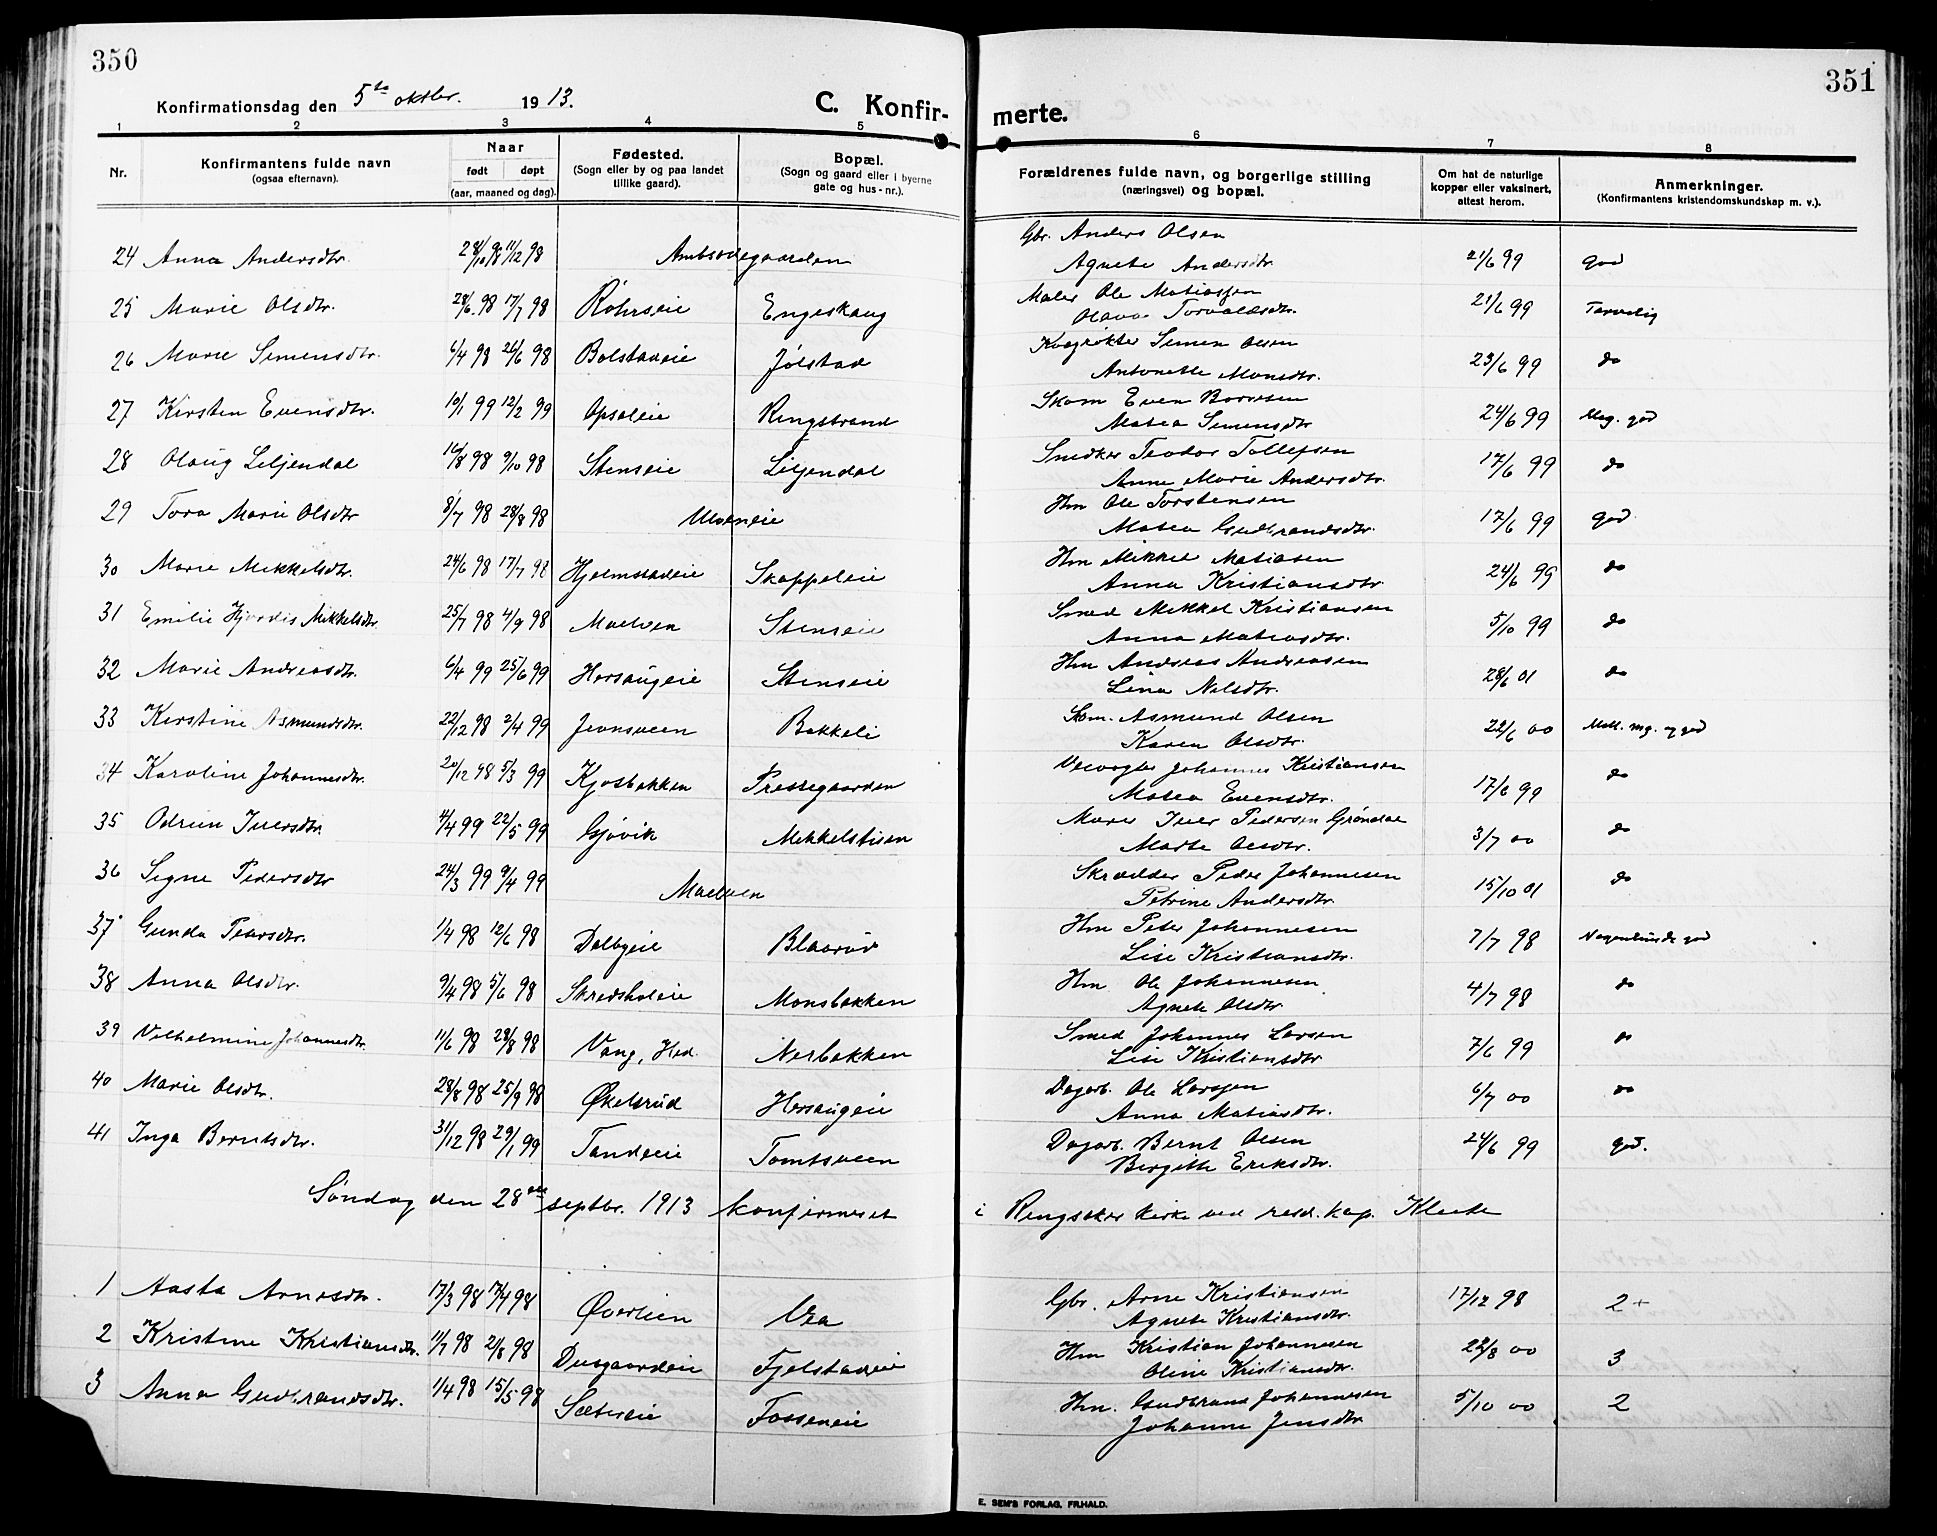 350
Konfirmationsdag den 5te oktbr. 1913.
C. Konfir-
1 2 3 4 5
Nr.
Konfirmantens fulde navn
(ogsaa efternavn).
Naar
født døpt
(aar, maaned og dag).
Fødested.
(Sogn eller by og paa landet
tillike gaard).
Bopæl.
(Sogn og gaard eller i byerne
gate og hus-nr.).
24 Anna Andersdtr. 28/10 98 11/12 98
25 Marie Olsdtr. 28/6 98 17/7 98 Røhrseie Engeskaug
26 Marie Simensdtr. 6/4 98 26/6 98 Bolstadeie Jølstad
27 Kirsten Evensdtr. 10/1 99 12/2 99 Opsaleie Ringstrand
28 Olaug Liljendal 16/8 98 9/10 98 Stenseie Liljendal
29 Tora Marie Olsdtr 8/7 98 28/8 98 Ulveneie
30 Marie Mikkelsdtr. 24/6 98 17/7 98 Hjelmstadeie Skappeleie
31 Emilie Hjørdis Mikkelsdtr. 25/7 98 4/9 98 Moelven Stenseie
32 Marie Andreasdtr. 6/4 99 25/6 99 Horsaugeie Stenseie
33 Kirstine Asmundsdtr. 22/12 98 2/4 99 Jevnsveen Bakkeli
34 Karoline Johannesdtr. 20/12 98 5/3 99 Kjosbakken Prestegaarden
35 Odrun Iversdtr. 4/4 99 22/5 99 Gjøvik Mikkelstuen
36 Signe Pedersdtr 24/3 99 9/4 99 Moelven
37 Gunda Petersdtr. 1/4 98 12/6 98 Dalbyeie Blaarud
38 Anna Olsdtr. 9/4 98 5/6 98 Skredsholeie Monsbakken
39 Vilhelmine Johannesdtr. 11/6 98 28/8 98 Vang, Hed. Nerbakken
40 Marie Olsdtr. 28/8 98 25/9 98 Økelsrud Horsaugeie
41 Inga Berntsdtr. 31/12 98 29/1 99 Tandeeie Tomtsveen
Søndag den 28de septbr. 1913 konfirmeret
1 Aasta Arnesdtr. 17/3 98 17/4 98 Øverlien Vea
2 Kristine Kristiansdtr. 11/7 98 21/8 98 Dusgaardeie Fjelstadeie
3 Anna Gudbrandsdtr. 1/4 98 15/5 98 Sætereie Fosseneie
351
merte.
6 7 8
Forældrenes fulde navn, og borgerlige stilling
(næringsvei) og bopæl.
Om hat de naturlige
kopper eller vaksinert,
attest herom.
Anmerkninger.
(Konfirmantens kristendomskundskap m. v.).
Gbr. Anders Olsen
Agnete Andersdtr. 21/6 99 god
Maler Ole Matiassen
Olava Torvaldsdtr. 21/6 99 Tarvelig
Kvægrøkter Simen Olsen
Antonette Monsdtr. 23/6 99 do
Skom Even
Matea Simensdtr 24/6 99 Meg. god
Snedker Teodor Tollefsen
Anne Marie Andersdtr. 17/6 99 do
Hm Ole Torstensen
Matea Gudbrandsdtr. 17/6 99 god
Hm Mikkel Matiasen
Anna Kristiansdtr 24/6 99 do
Smed Mikkel Kristiansen
Anna Matiasdtr. 5/10 99 do
Hm Andreas Andreasen
Lina Nilsdtr. 28/6 01 do
Skom. Asmund Olsen
Karen Olsdtr. 22/6 00 Mell. mg. og god
Johannes Kristiansen
Matea Evensdtr. 17/6 99 do
Murer Iver Pedersen Grøndal
Marte Olsdtr. 3/7 00 do
Skrædder Peder Johannesen
Petrine Andersdtr. 15/10 01 do
Hm Peter Johannesen
Lise Kristiansdtr. 7/7 98 Nogenlunde god
Hm Ole Johannesen
Agnete Olsdtr 4/7 98 do
Smed Johannes Larsen
Lise Kristiansdtr 7/6 99 do
Dagarb. Ole Larssen
Anna Matiasdtr. 6/7 00 do
Dagarb. Bernt Olsen
Birgitte Eriksdtr. 24/6 99 god.
i Ringsaker kirke ved resid. kap. Klaste
Gbr. Arne Kristiansen
Agnete Kristiansdtr. 17/12 98 2+
Hm Kristian Johannesen
Oline Kristiansdtr. 22/8 00 3
Hm. Gudbrand Johannesen
Johanne Jensdtr 5/10 00 2
E. SEM'S FORLAG, FR.HALD.